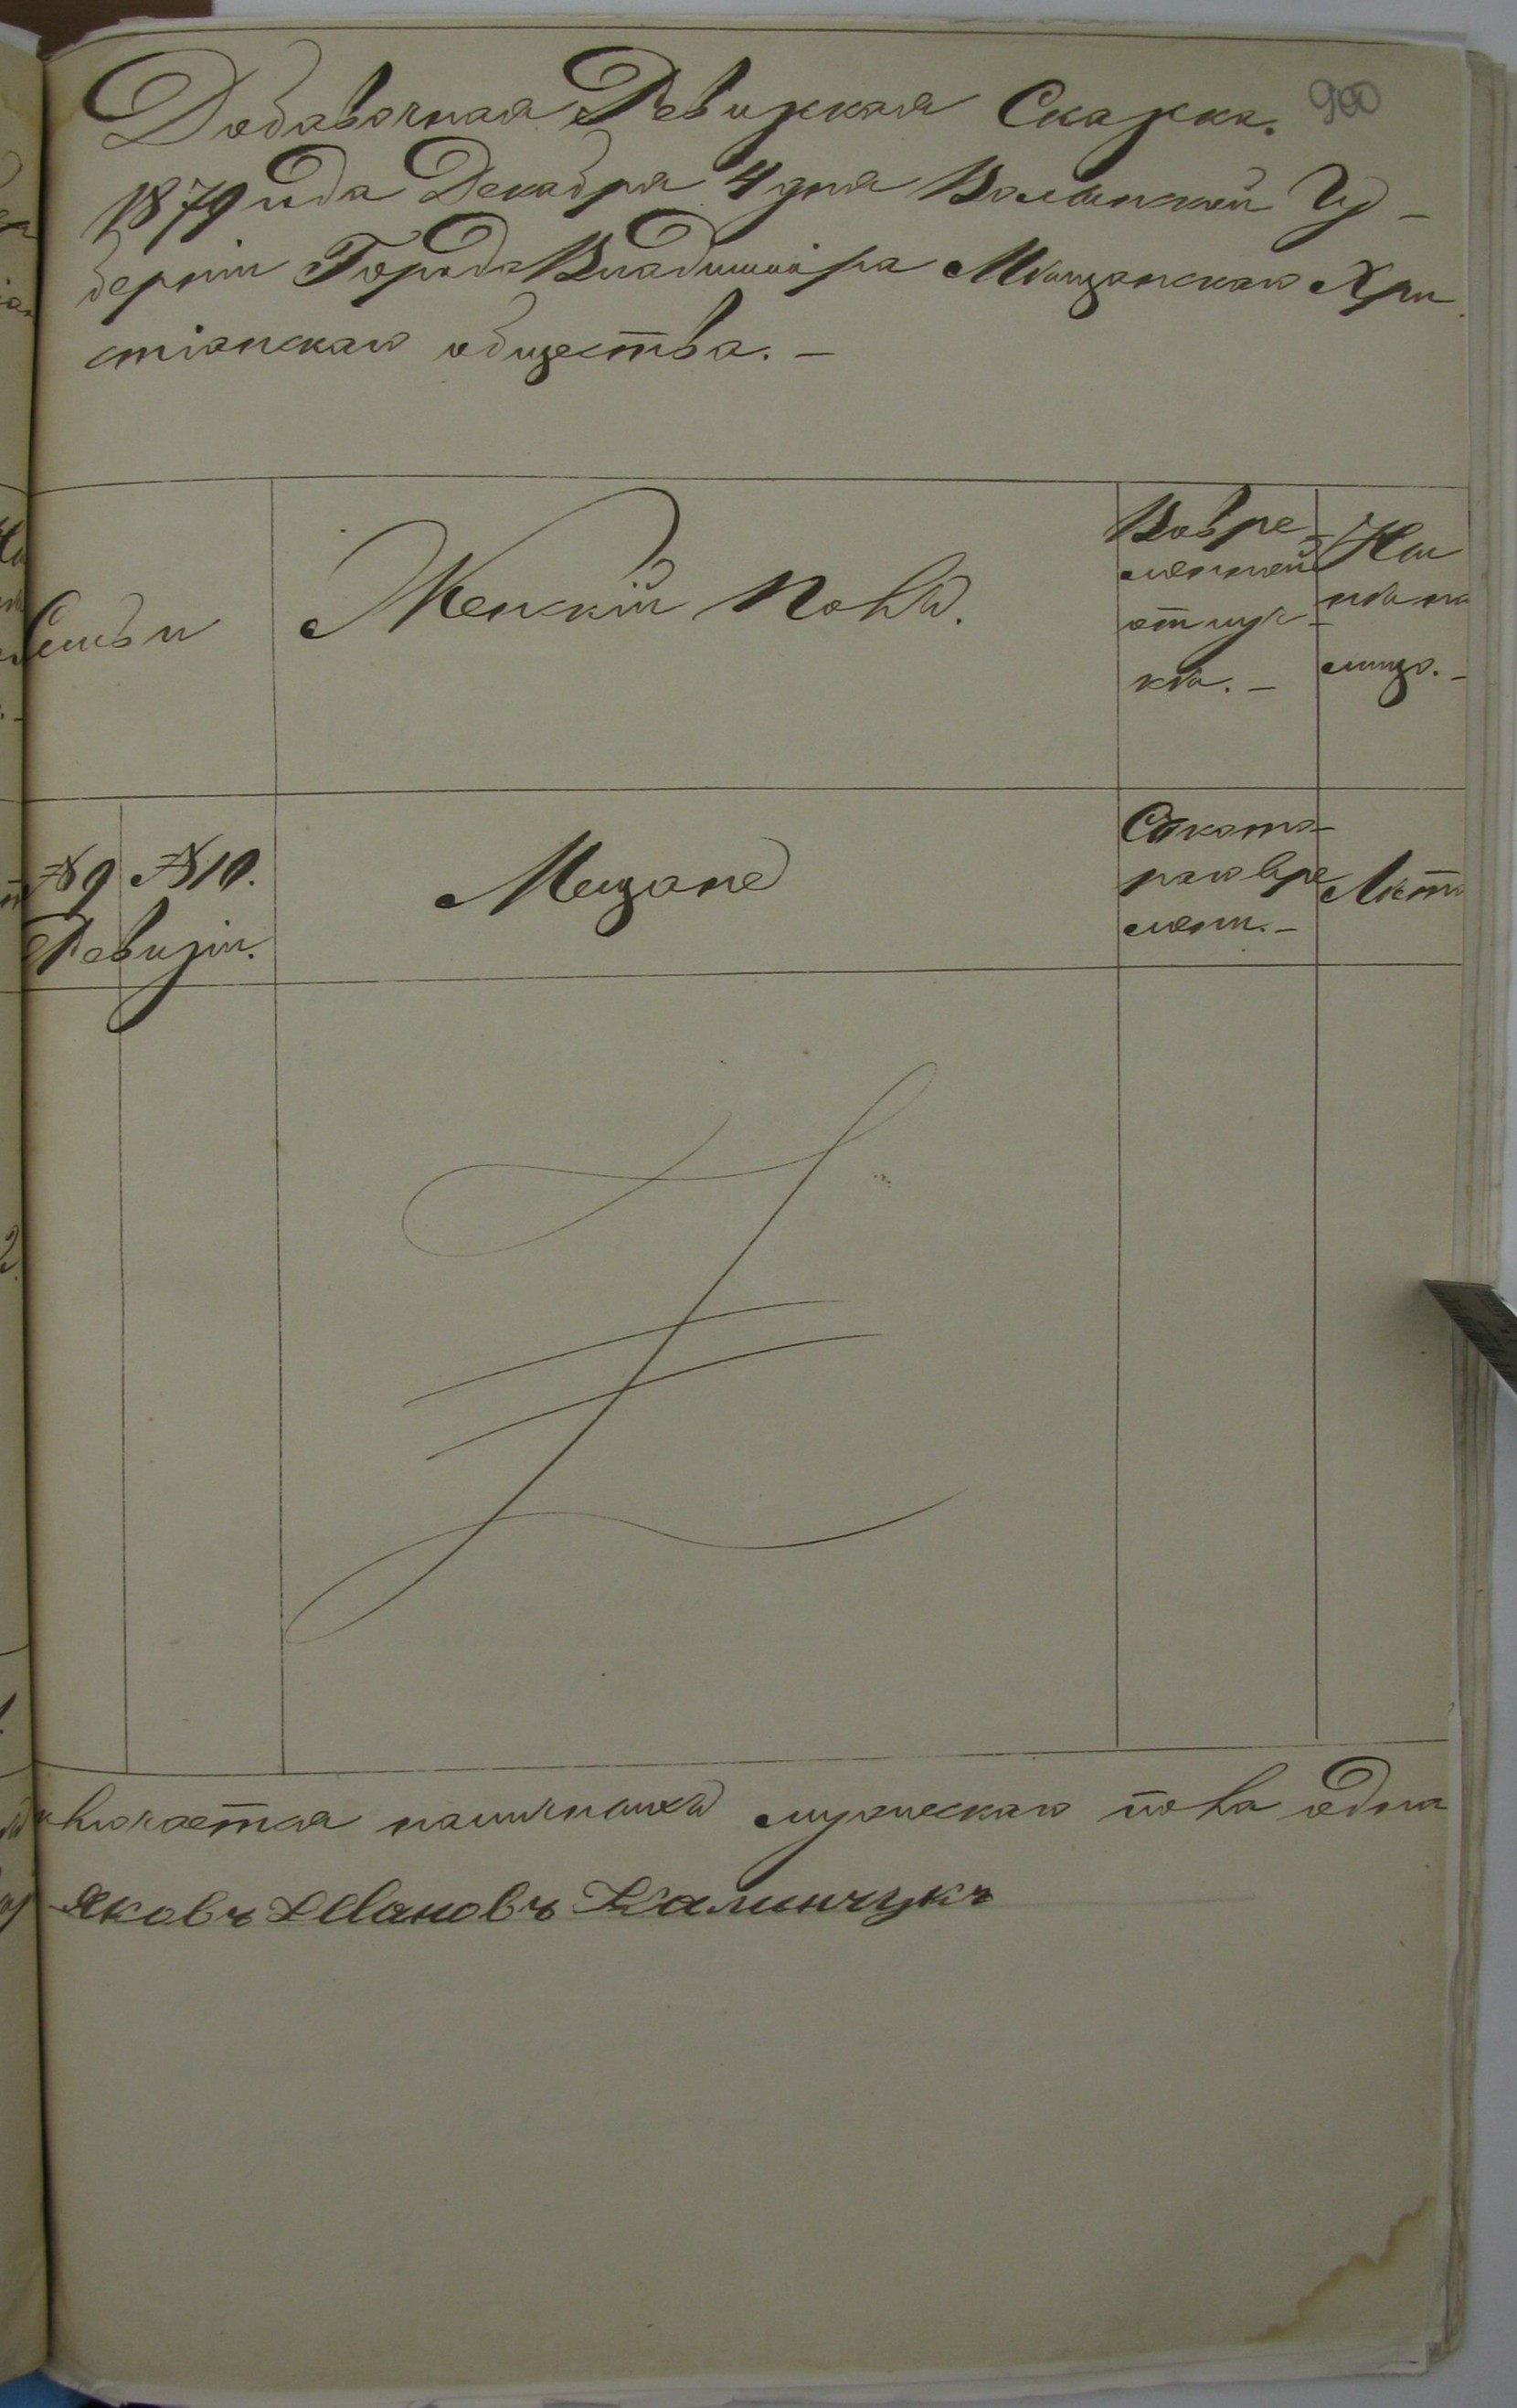 Добавочная Ревизкая Сказка. 900
1879 года Декабря 4 дня Волынской Гу-
берніи Города Владиміра Мѣщанскаго Хри
стіанскаго общества. —
Семьи
Женскій полъ.
Вовре-
менной
отлуч-
кѣ. —
Ны
нѣ на
лицо. —
№ 9 № 10.
Ревизіи.
Мещане
Съкото-
раго вре
мени. —
Лѣта
ключается наличныхъ мужескаго пола одна
Яковъ Ивановъ Калинчукъ